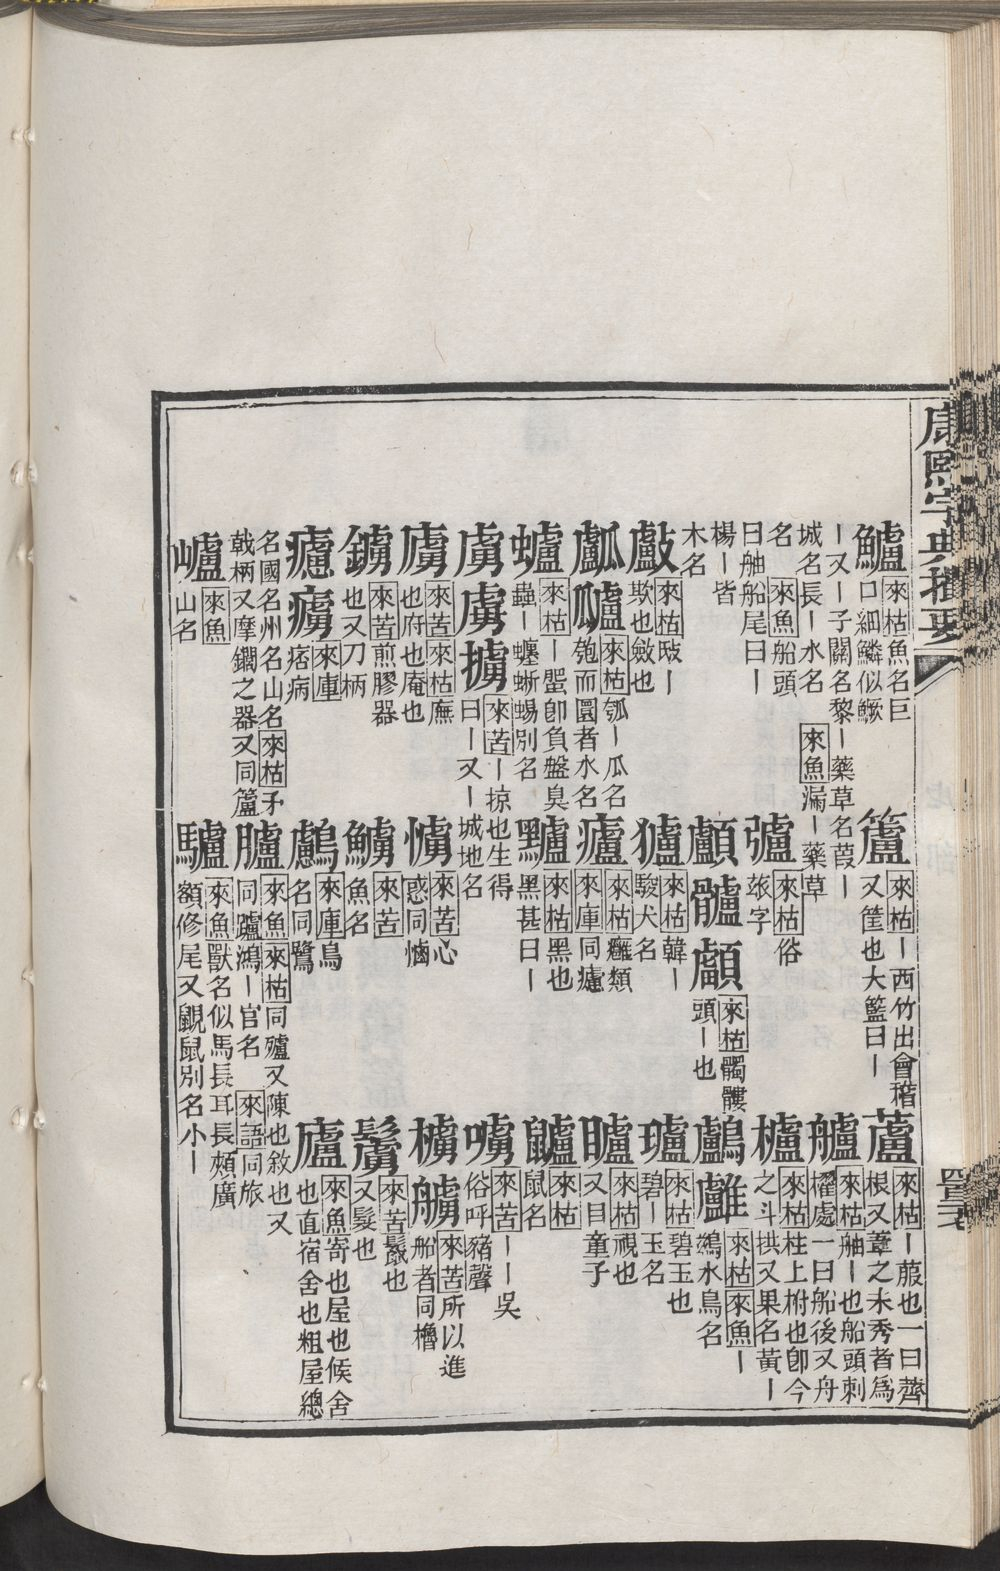 康熙字典撮要
鱸 來枯魚名巨口細鱗似鱖
籚 來枯｜西竹出會稽又筐也大籃曰｜
蘆 來枯｜菔也一曰薺根又葦之未秀者為
｜又｜子關名黎｜藥草名葭｜
城名長｜水名 來魚漏｜藥草名
艫 來枯舳｜也船頭刺櫂處一曰船後又舟
來魚船頭曰舳船尾曰｜
櫨 來枯柱上柎也卽今之斗拱又果名黃｜
楊｜皆木名
鸕 鸕 來枯 來魚｜鷀水鳥名
㪭 來枯㪭｜欺也斂也
瓐 來枯碧玉也碧｜玉名
瓠 來枯瓠｜瓜名匏而圜者水名
矑 來枯視也又目童子
蠦 來枯｜蜰卽負盤臭蟲｜蠬蜥蜴別名
鼯 來枯鼠名
虜 虜 擄 來苦｜掠也生得曰｜又｜城地名
嚧 來苦｜｜吳俗呼豬聲
㢚 來苦 來枯廡也府也庵也
櫓 艣 來苦所以進船者同櫓
鐪 來苦煎膠器也又刀柄
鬗 來苦鬛也又髮也
廬 來魚寄也屋也候舍也直宿舍也粗屋總
名國名州名山名 來枯矛戟柄又摩鑭之器又同籚
瓐 來枯俗㼖字
顱 髗 顱 來枯髑髏頭｜也
獹 來枯韓｜駿犬名
癧 來枯癰類 來庫同瘧
黸 來枯黑也黑甚曰｜
㦄 來苦心惑同㥬
鱸 來苦魚名
鸕 來庫鳥名同鷺
瘧 癆 來庫痞病
臚 來魚 來枯同㱺又陳也敘也又同䠂鴻｜官名 來語同旅
爐 來魚山名
驢 來魚獸名似馬長耳長頰廣額修尾又鼰鼠別名小｜